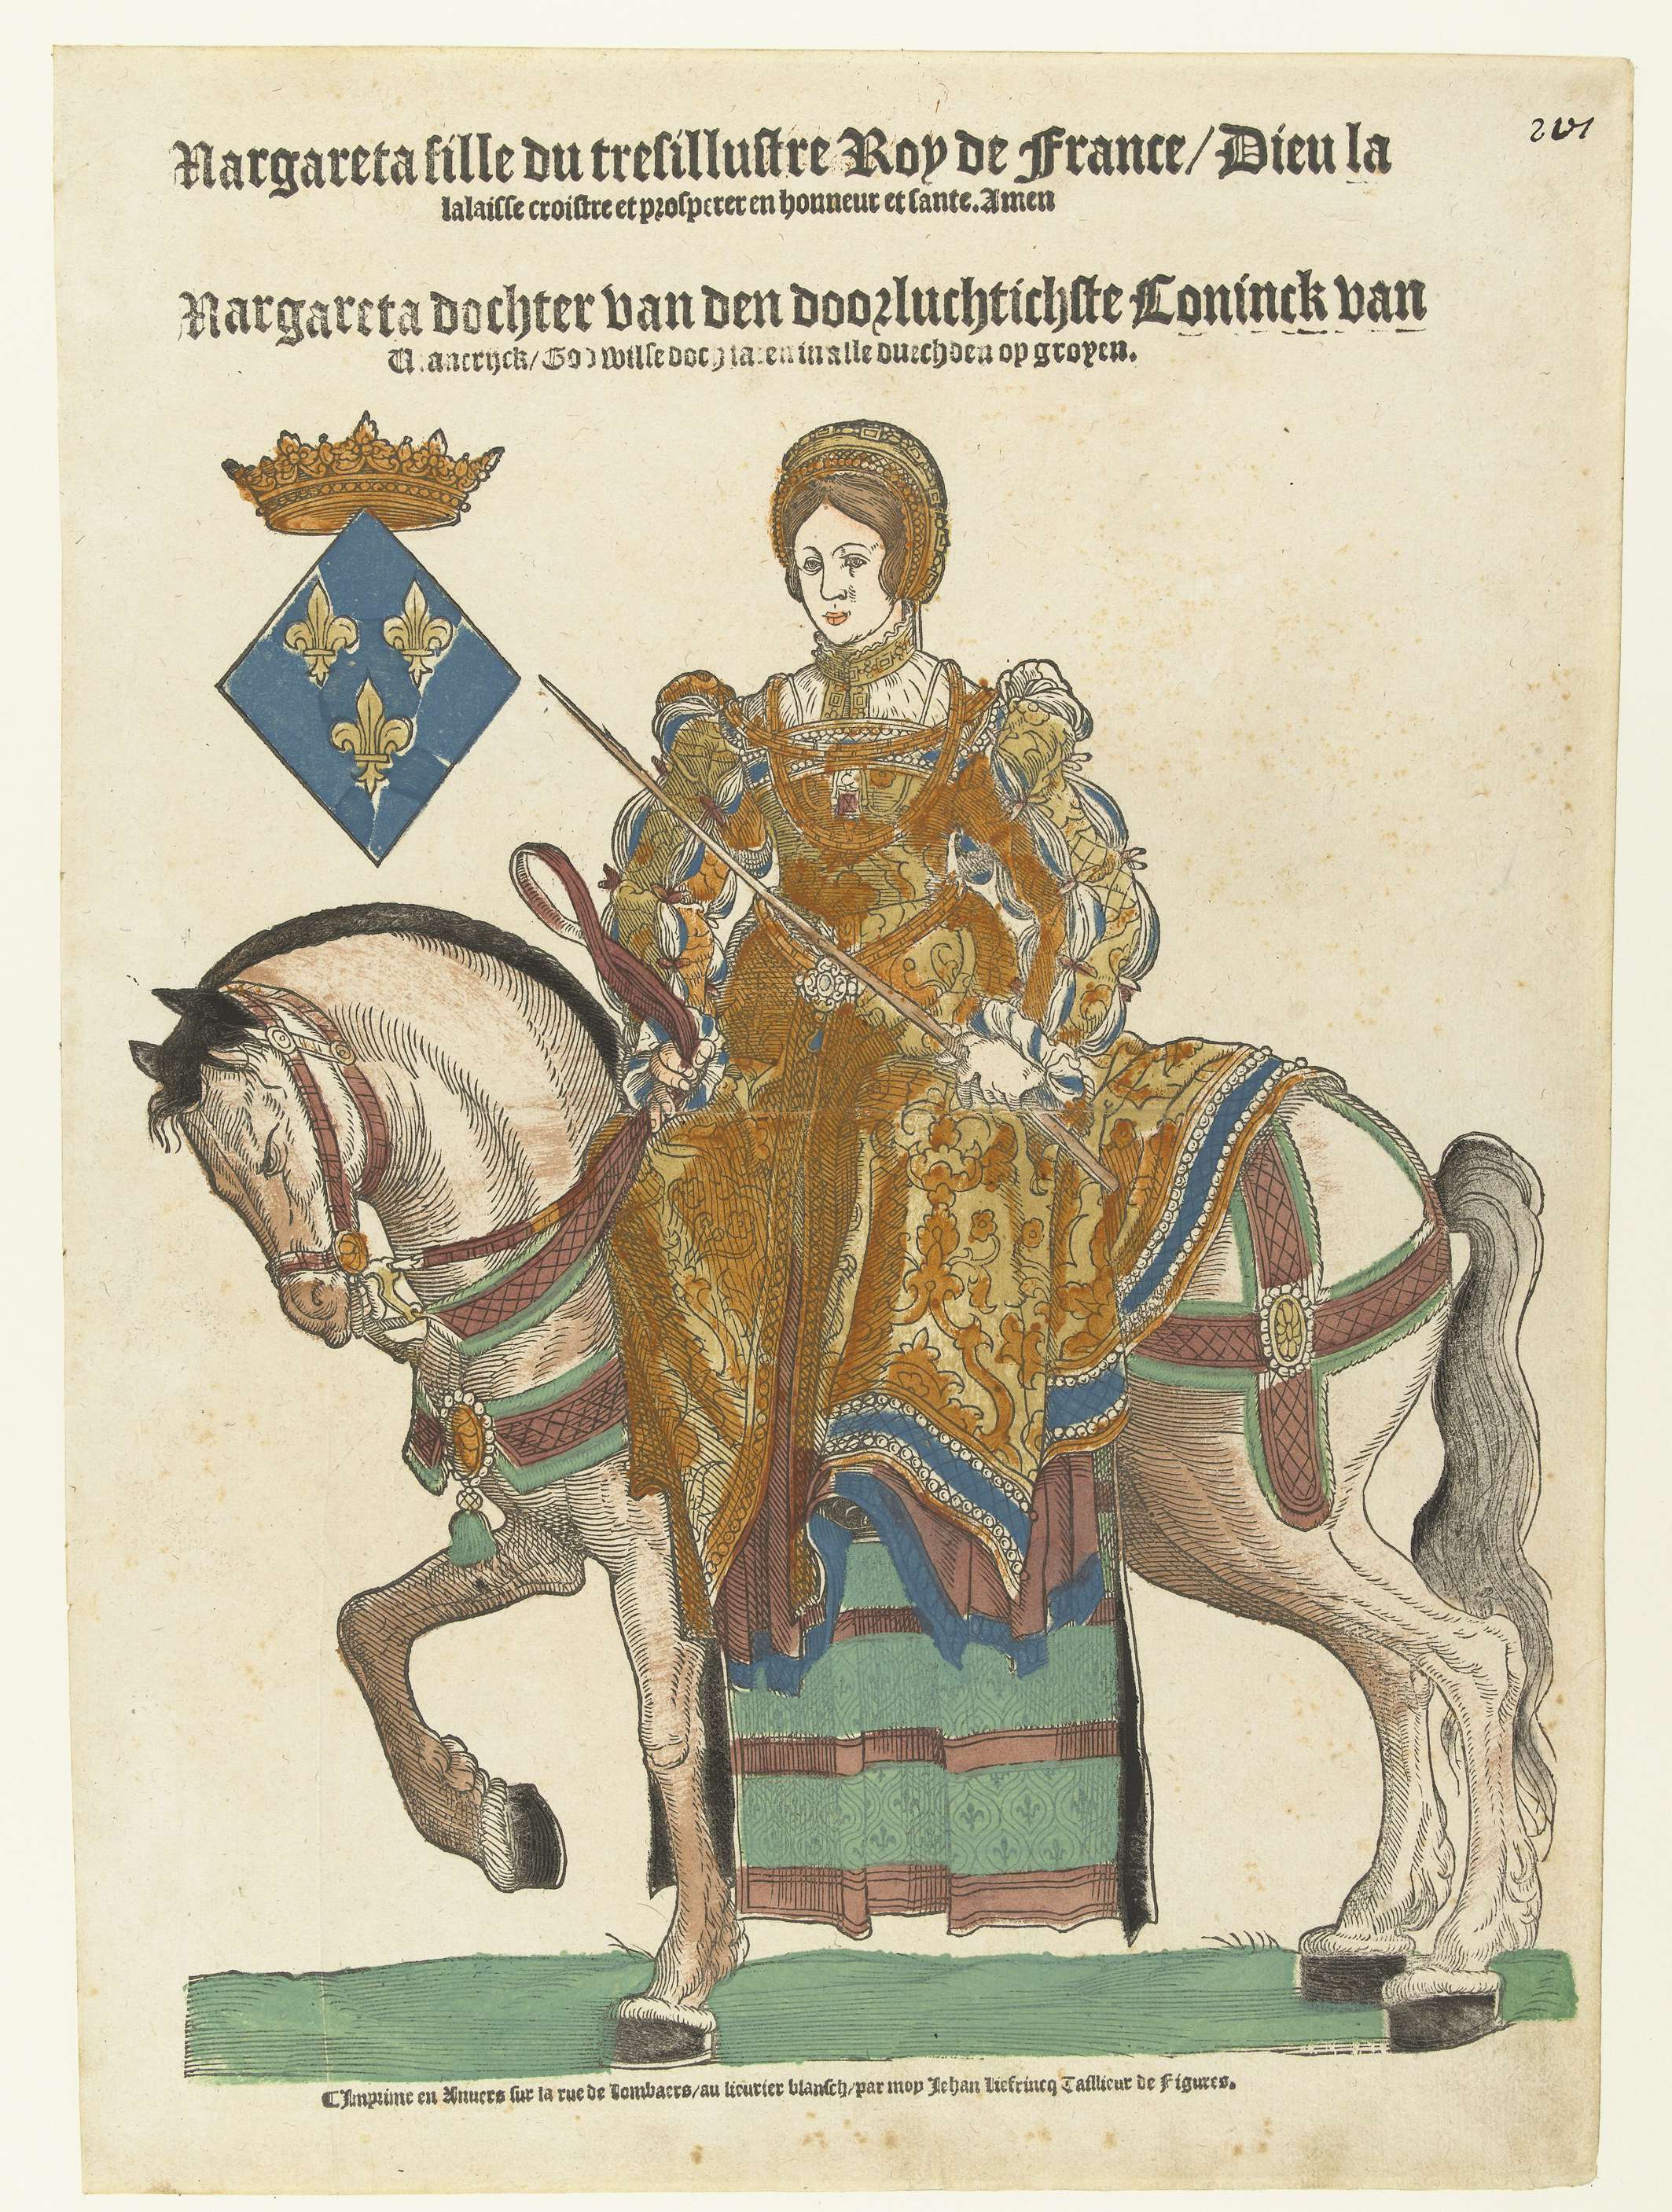 Margareta fille du tresillustre Roy de France/Dieu la
lalaisse croistre et prosperer en honneur et sante. Amen
Margareta dochter van den doorluchtichste Coninck van
Vrancrijck/God wilse doch laten in alle duechden op groyen.
Imprime en Anuers sur la rue de Lombaers/au lieurier blansch/par moy Jehan Liefrincq Taillieur de Figures.